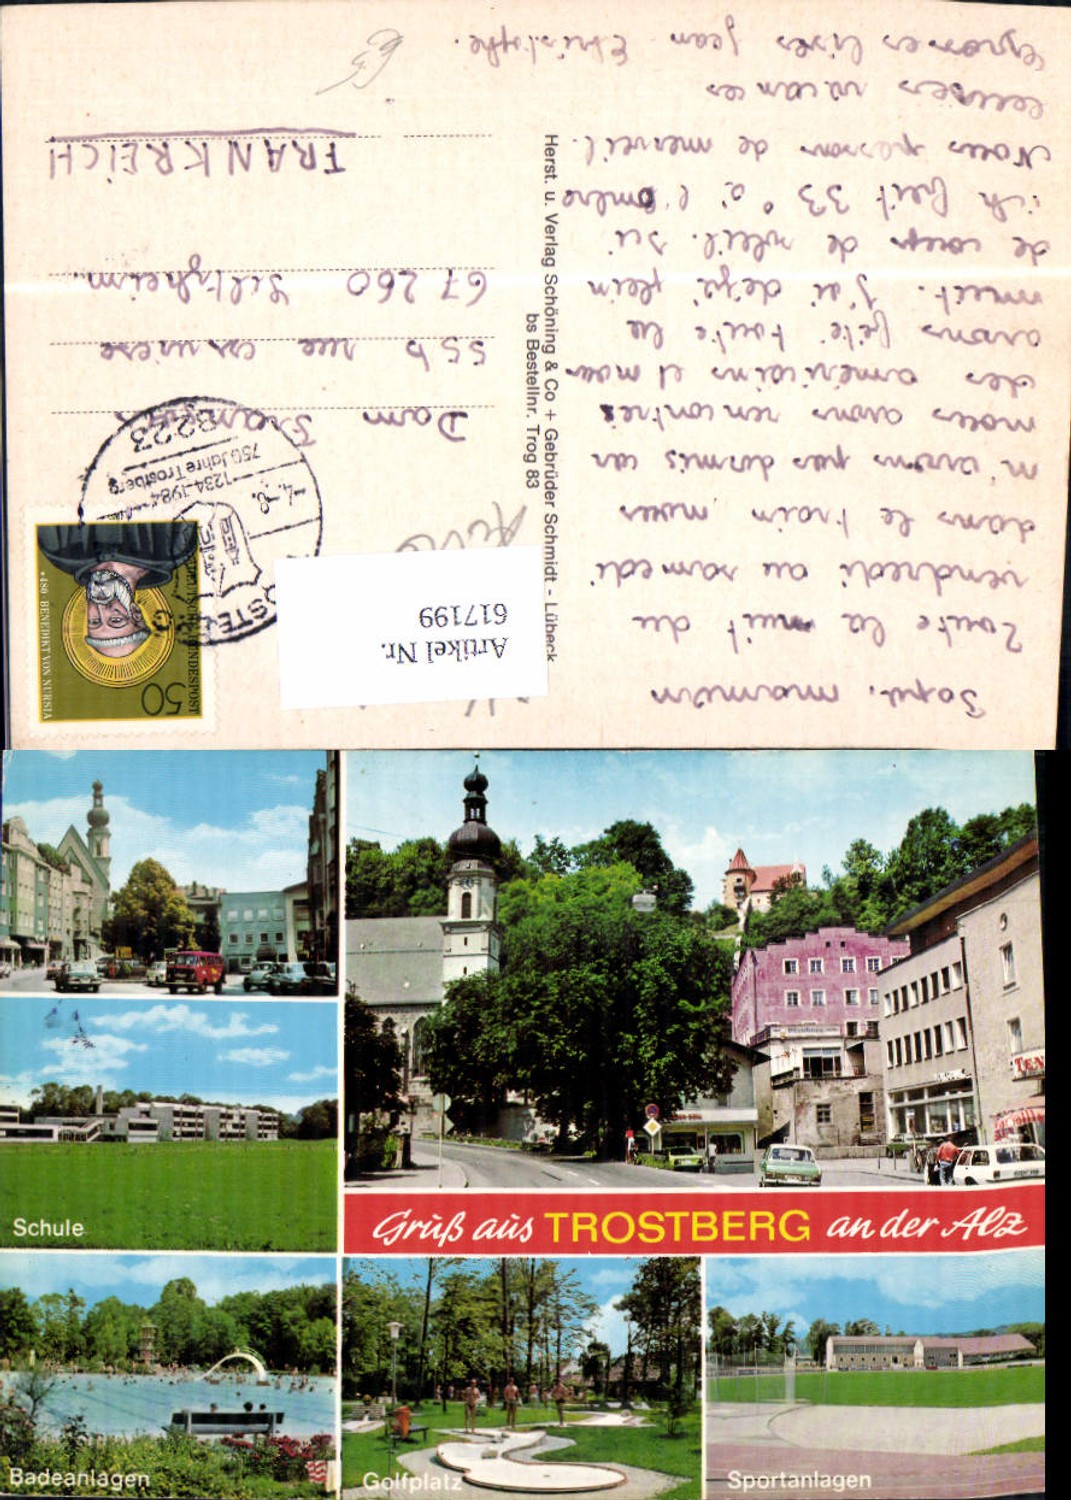 maman
toute la nuit du
vendredi au samedi
dans le train nous
n'avons pas dormis car
nous avons rencontrés
des américains et nous
avons fété toute la
nuit. J'ai dejà plein
de coups de soleil.
fait 33° à l'ombre
Nous passons de
vacances
Grosses bises Jean Christophe.
Herst. u. Verlag Schöning & Co + Gebrüder Schmidt - Lübeck
bs Bestellnr. Trog 83
Artikel Nr.
617199
50
DEUTSCHE BUNDESPOST
*480 · BENEDIKT VON NURSIA
1234-1984
750 Jahre Trostberg
-4.-8.
8223
55b rue
67260
FRANKREICH
TEN
Schule
Gruß aus TROSTBERG an der Alz
Badeanlagen
Golfplatz
Sportanlagen